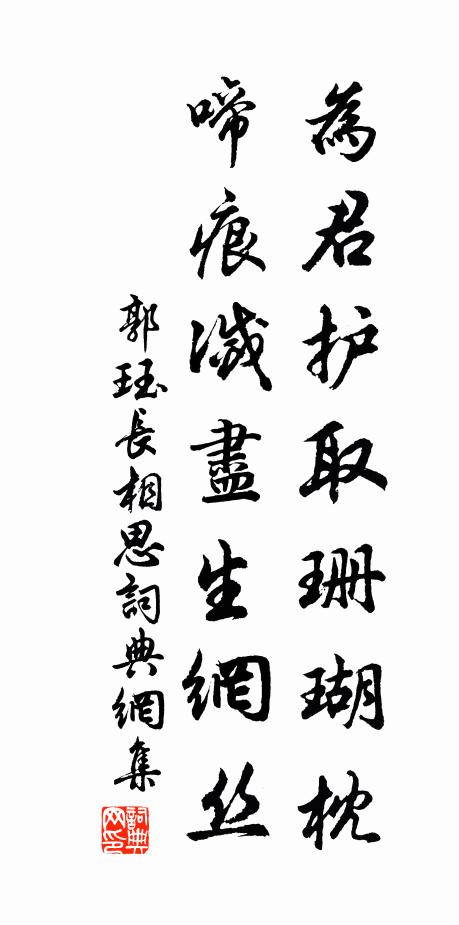 為君护取珊瑚枕
啼痕滅盡生網丝
郭珏長相思詞典網集
詞典網印